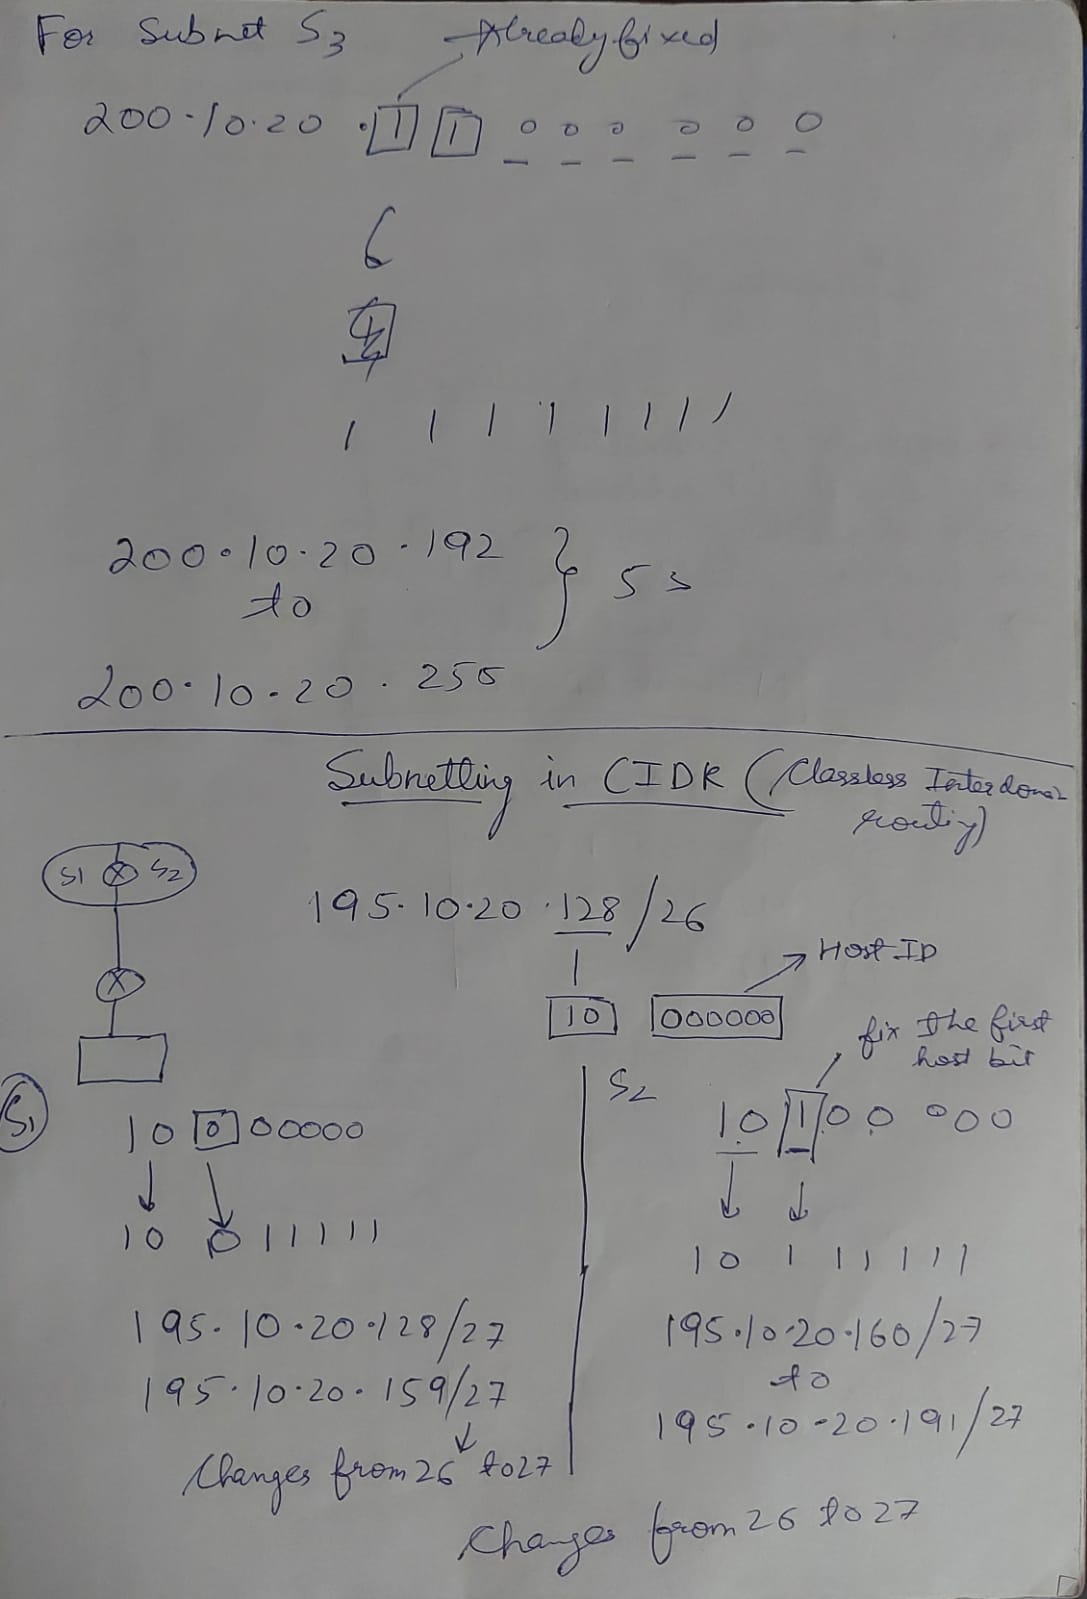 For Subnet S3 Already fixed
200.10.20 .1 1 0 0 0 0 0 0
6
1 1 1 1 1 1 1 1
200.10.20.192
to
} S3
200.10.20.255
Subnetting in CIDR (Classless Interdomain
routing)
S1 S2
195.10.20.128/26
Host ID
10 000000
fix the first
host bit
S1
10 0 00000
10 0 11111
195.10.20.128/27
195.10.20.159/27
Changes from 26 to 27
S2
10 1 00 000
10 1 11111
195.10.20.160/27
to
195.10.20.191/27
Changes from 26 to 27